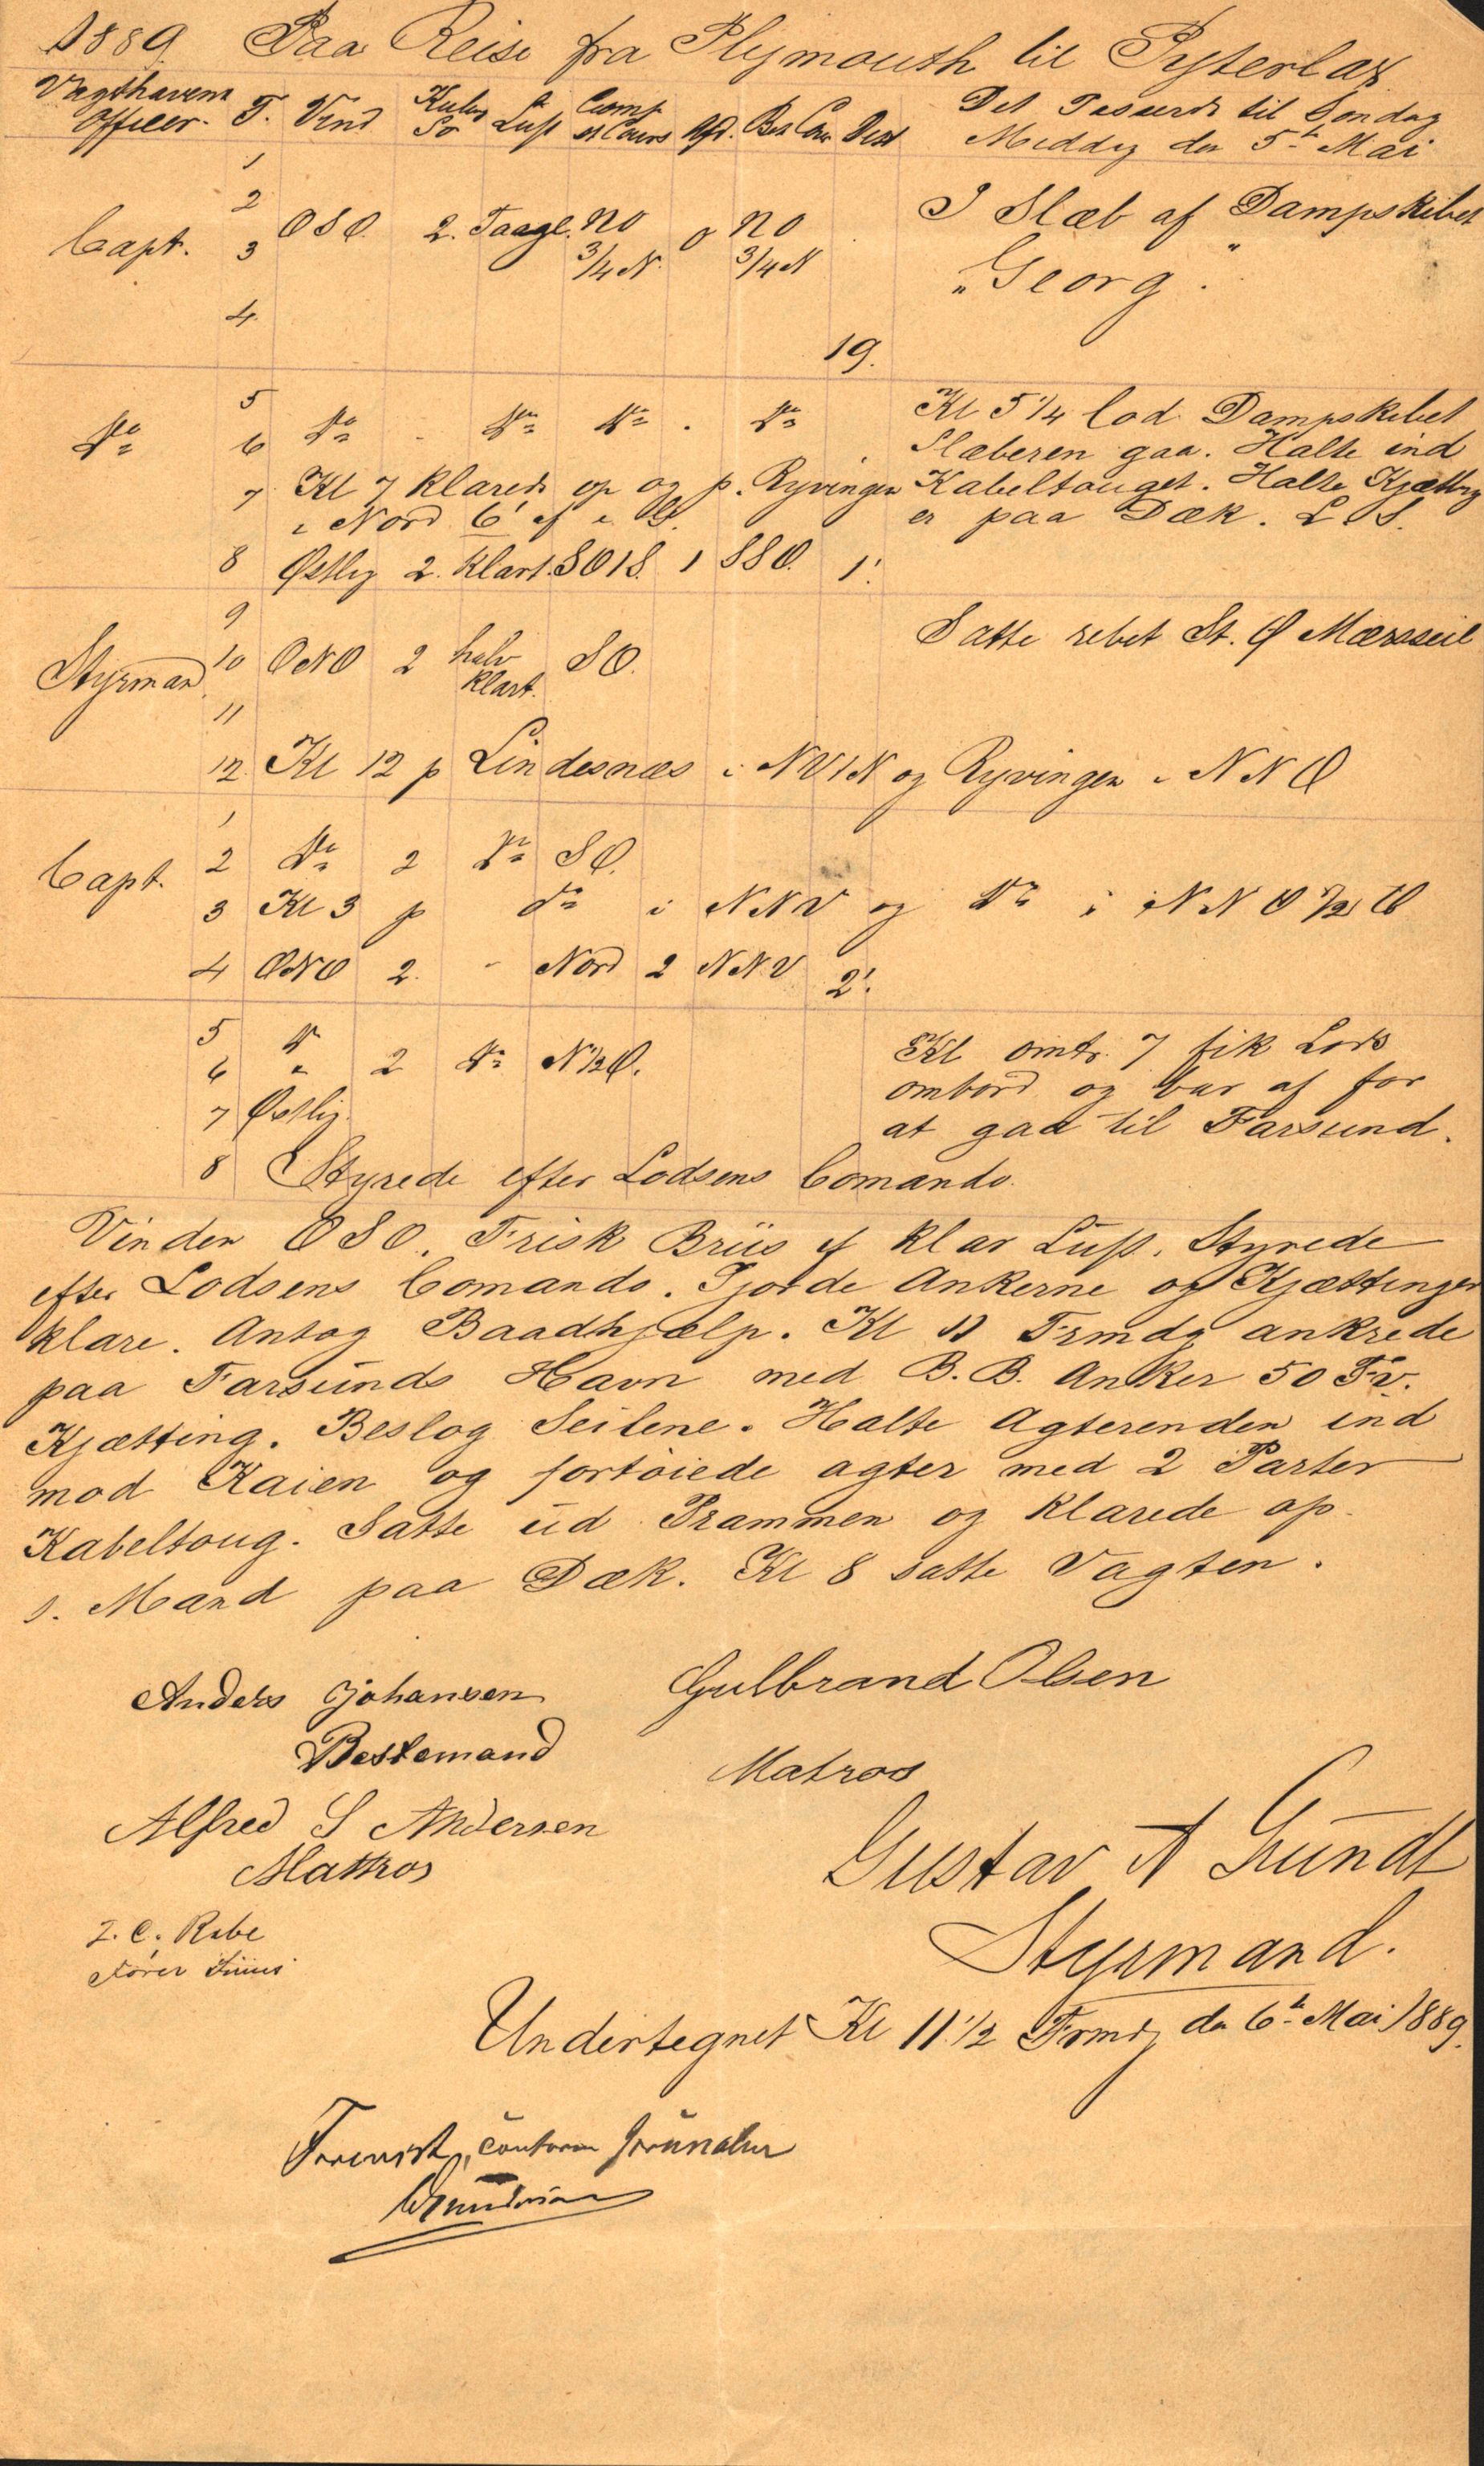 1889. Paa Reise fra Plymouth til Pyterlax
Vagthavende Officer. T. Vind Kuling Sø Luft Comp st Cours Afd. Bes Cou Dist Det Passerede til Søndag Middag den 5te Mai
1
2
Capt. 3 OSO. 2. Taage. NO ¾ N. 0 NO ¾ N I Slæb af Dampskibet
„Georg“.
4
19.
5
Do 6 Do - Do Do . Do Kl 5 1/4 lod Dampskibet
Slæberen gaa. Halte ind
7 Kl 7 klarede op og p. Ryvingen Kabeltouget. Halte Kjætting
i Nord 6' af paa Dæk. L. S.
8 Østlig 2. Klart. SO1S. 1 SSO. 1'.
9
Styrmand 10 ONO 2 halv klart. SO. Satte rebet St. & Mersseil
11
12. Kl 12 p Lindesnæs i NV1N og Ryvingen i NNO
1
Capt. 2 Do 2 Do SO.
3 Kl 3 p do i NNV og Do i NNO 1/2 O
4 ONO 2. - Nord 2 NNV 2'.
5
6 " 2 Do N1/2O. Kl omtr. 7 fik Lods
ombord og bar af for
7 Østlig. at gaa til Farsund.
8 Styrede efter Lodsens Comando.
Vinden OSO. Frisk Briis & klar Luft. Styrede
efter Lodsens Comando. Gjorde Ankerne og Kjættinger
klare. Antog Baadhjælp. Kl 11 Frmdg ankrede
paa Farsunds Havn med B.B. Anker 50 Fv.
Kjætting. Beslog Seilene. Halte Agterenden ind
mod Kaien og fortøiede agter med 2 Parter
Kabeltoug. Satte ud Prammen og klarede op
1. Mand paa Dæk. Kl 8 satte Vagten.
Anders Johansen Gulbrand Olsen
Bestemand Matros
Alfred S Andersen
Mattros
Gustav A Gundt
Styrmand.
J. C. Rabe
Fører
Undertegnet Kl 11 1/2 Frmdg den 6te Mai 1889.